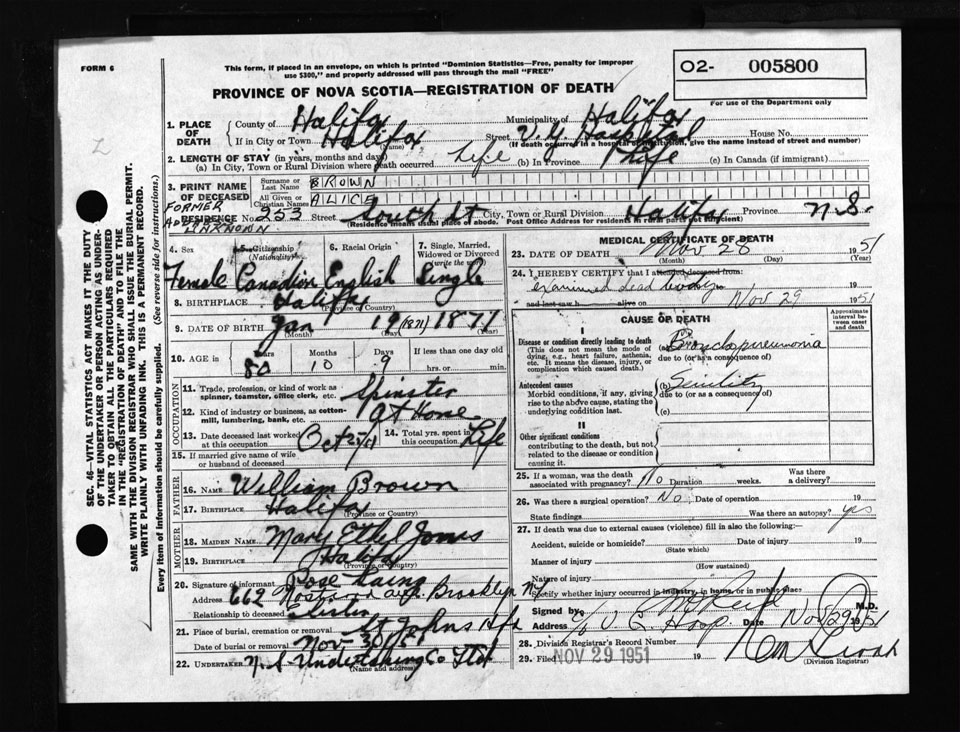 FORM 6
This form, if placed in an envelope, on which is printed "Dominion Statistics—Free, penalty for improper
use $300," and properly addressed will pass through the mail "FREE"
O2- 005800
For use of the Department only
PROVINCE OF NOVA SCOTIA—REGISTRATION OF DEATH
1. PLACE OF DEATH
County of Halifax Municipality of Halifax
If in City or Town Halifax (Name) Street V.G. Hospital House No.
(If death occurred in a hospital or institution, give the name instead of street and number)
2. LENGTH OF STAY (in years, months and days)
(a) In City, Town or Rural Division where death occurred Life (b) In Province Life (c) In Canada (if immigrant)
3. PRINT NAME OF DECEASED
Surname or Last Name BROWN
All Given or Christian Names ALICE
FORMER
RESIDENCE No. 253 Street South St City, Town or Rural Division Halifax Province N.S.
UNKNOWN
(Residence means usual place of abode. Post Office Address for residents in rural parts not sufficient)
4. Sex Female
5. Citizenship (Nationality) Canadian
6. Racial Origin English
7. Single, Married, Widowed or Divorced (write the word) Single
8. BIRTHPLACE Halifax
(Province or Country)
9. DATE OF BIRTH Jan 19 (1871) 1871
(Month) (Day) (Year)
10. AGE in Years 80 Months 10 Days 9 If less than one day old
hrs. or min.
OCCUPATION
11. Trade, profession, or kind of work as spinner, teamster, office clerk, etc. Spinster
12. Kind of industry or business, as cotton-mill, lumbering, bank, etc. At Home
13. Date deceased last worked at this occupation Oct 25/51
14. Total yrs. spent in this occupation Life
15. If married give name of wife or husband of deceased
FATHER
16. NAME William Brown
17. BIRTHPLACE Halifax
(Province or Country)
MOTHER
18. MAIDEN NAME Mary Ethel Jones
19. BIRTHPLACE Halifax
(Province or Country)
20. Signature of informant Rose Laing
Address 662 Ave Brooklyn NY
Relationship to deceased Sister
21. Place of burial, cremation or removal St Johns Hfx
Date of burial or removal Nov 30/51
22. UNDERTAKER N.S. Undertaking Co Ltd
(Name and address)
MEDICAL CERTIFICATE OF DEATH
23. DATE OF DEATH Nov 28 1951
(Month) (Day) (Year)
24. I HEREBY CERTIFY that I attended deceased from:
examined dead body
and last saw h alive on Nov 29 1951
CAUSE OF DEATH
Approximate interval between onset and death
I
Disease or condition directly leading to death
(This does not mean the mode of dying, e.g., heart failure, asthenia, etc. It means the disease, injury, or complication which caused death.)
(a) Bronchopneumonia
due to (or as a consequence of)
Antecedent causes
Morbid conditions, if any, giving rise to the above cause, stating the underlying condition last.
(b) Senility
due to (or as a consequence of)
(c)
II
Other significant conditions
contributing to the death, but not related to the disease or condition causing it.
25. If a woman, was the death associated with pregnancy? No Duration weeks. Was there a delivery?
26. Was there a surgical operation? No Date of operation 19
State findings Was there an autopsy? yes
27. If death was due to external causes (violence) fill in also the following:—
Accident, suicide or homicide? Date of injury 19
(State which)
Manner of injury
(How sustained)
Nature of injury
Specify whether injury occurred in industry, in home, or in public place
Signed by M.D.
Address V G Hosp. Date Nov 29 1951
28. Division Registrar's Record Number
29. Filed NOV 29 1951 19
(Division Registrar)
SEC. 46—VITAL STATISTICS ACT MAKES IT THE DUTY
OF THE UNDERTAKER OR PERSON ACTING AS UNDER-
TAKER TO OBTAIN ALL THE PARTICULARS REQUIRED
IN THE "REGISTRATION OF DEATH" AND TO FILE THE
SAME WITH THE DIVISION REGISTRAR WHO SHALL ISSUE THE BURIAL PERMIT.
WRITE PLAINLY WITH UNFADING INK. THIS IS A PERMANENT RECORD.
Every item of information should be carefully supplied. (See reverse side for instructions.)